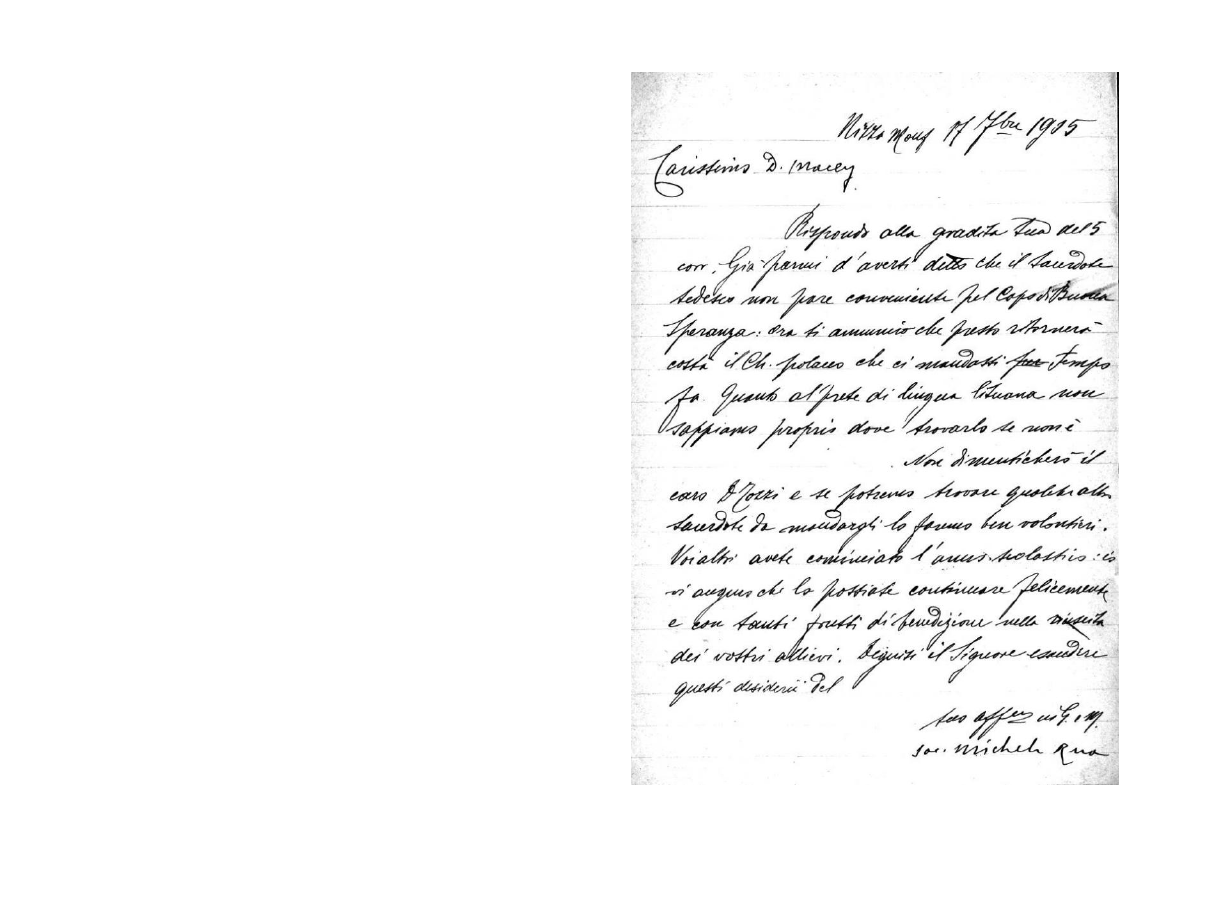 Nizza Monf 17 7bre 1905
Carissimo D. Macey
Rispondo alla gradita tua del 5
corr. Già parmi d'averti detto che il Sacerdote
tedesco non pare conveniente pel Capo di Buona
Speranza: ora ti annunzio che presto ritornerà
costà il Ch. polacco che ci mandasti tempo
fa. Quanto al prete di lingua lituana non
sappiamo proprio dove trovarlo se non è
Non dimenticherò il
caro D Tozzi e se potremo trovare qualche altro
Sacerdote da mandargli lo faremo ben volontieri.
Voi altri avete cominciato l'anno scolastico: io
vi auguro che lo possiate continuare felicemente
e con tanti frutti di benedizione nella riuscita
dei vostri allievi. Degnisi il Signore esaudire
questi desiderii del
tuo affmo in G. e M.
Sac. Michele Rua